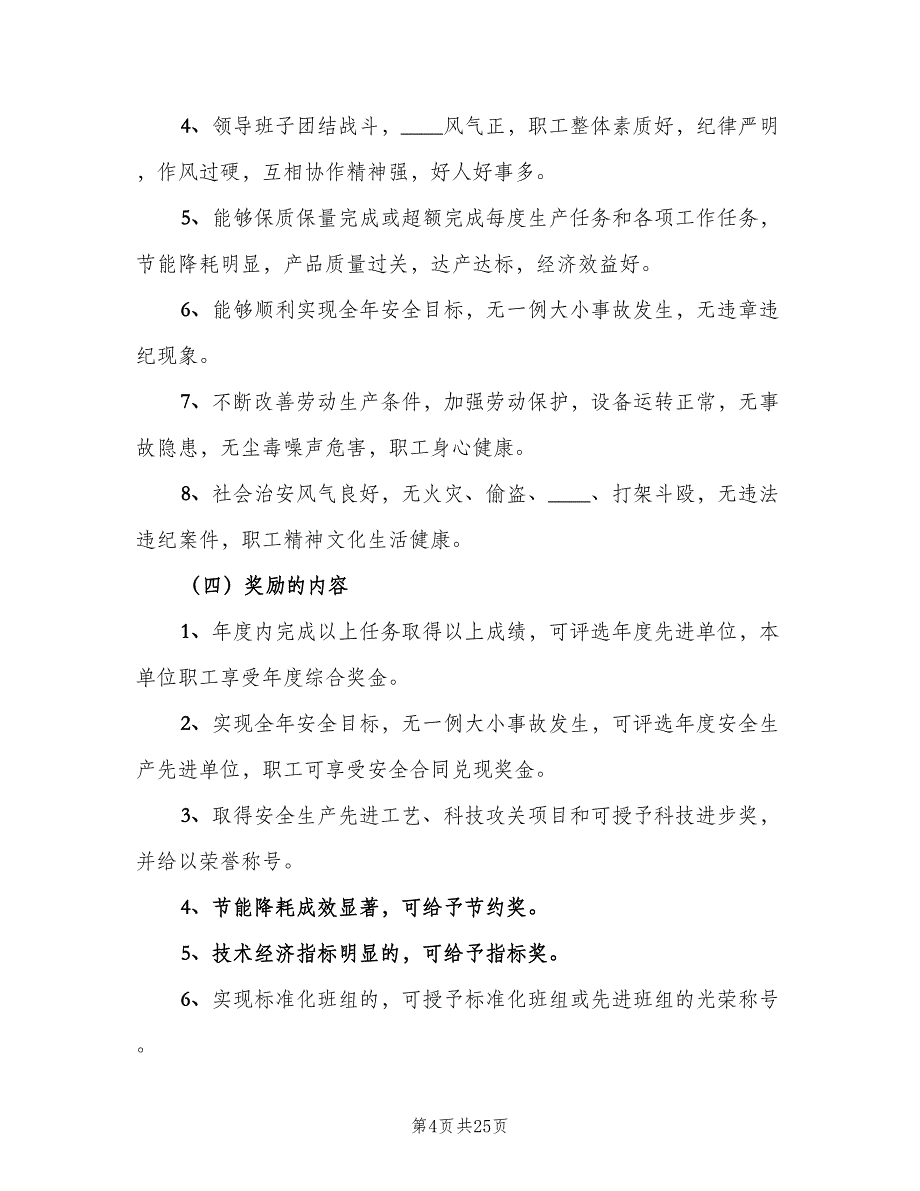 4、领导班子团结战斗，____风气正，职工整体素质好，纪律严明
，作风过硬，互相协作精神强，好人好事多。
5、能够保质保量完成或超额完成每度生产任务和各项工作任务，
节能降耗明显，产品质量过关，达产达标，经济效益好。
6、能够顺利实现全年安全目标，无一例大小事故发生，无违章违
纪现象。
7、不断改善劳动生产条件，加强劳动保护，设备运转正常，无事
故隐患，无尘毒噪声危害，职工身心健康。
8、社会治安风气良好，无火灾、偷盗、____、打架斗殴，无违法
违纪案件，职工精神文化生活健康。
（四）奖励的内容
1、年度内完成以上任务取得以上成绩，可评选年度先进单位，本
单位职工享受年度综合奖金。
2、实现全年安全目标，无一例大小事故发生，可评选年度安全生
产先进单位，职工可享受安全合同兑现奖金。
3、取得安全生产先进工艺、科技攻关项目和可授予科技进步奖，
并给以荣誉称号。
4、节能降耗成效显著，可给予节约奖。
5、技术经济指标明显的，可给予指标奖。
6、实现标准化班组的，可授予标准化班组或先进班组的光荣称号
。
第4页共25页